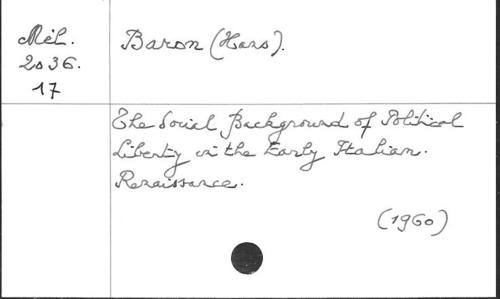 Mél.
2036.
17
Baron (Hans).
The Social Background of Political
Liberty in the Early Italian.
Renaissance.
(1960)